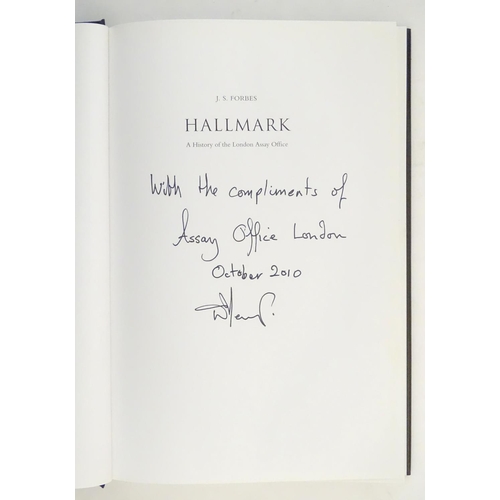 J. S. FORBES
HALLMARK
A History of the London Assay Office
With the compliments of
Assay Office London
October 2010